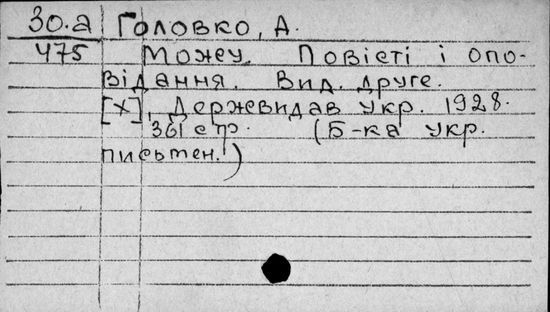 30.а Головко, А.
475 Можу. Повісті і опо-
відання. Вид. друге.
[Х], Держвидав укр. 1928.
361 стр. (Б-ка укр.
письмен.)